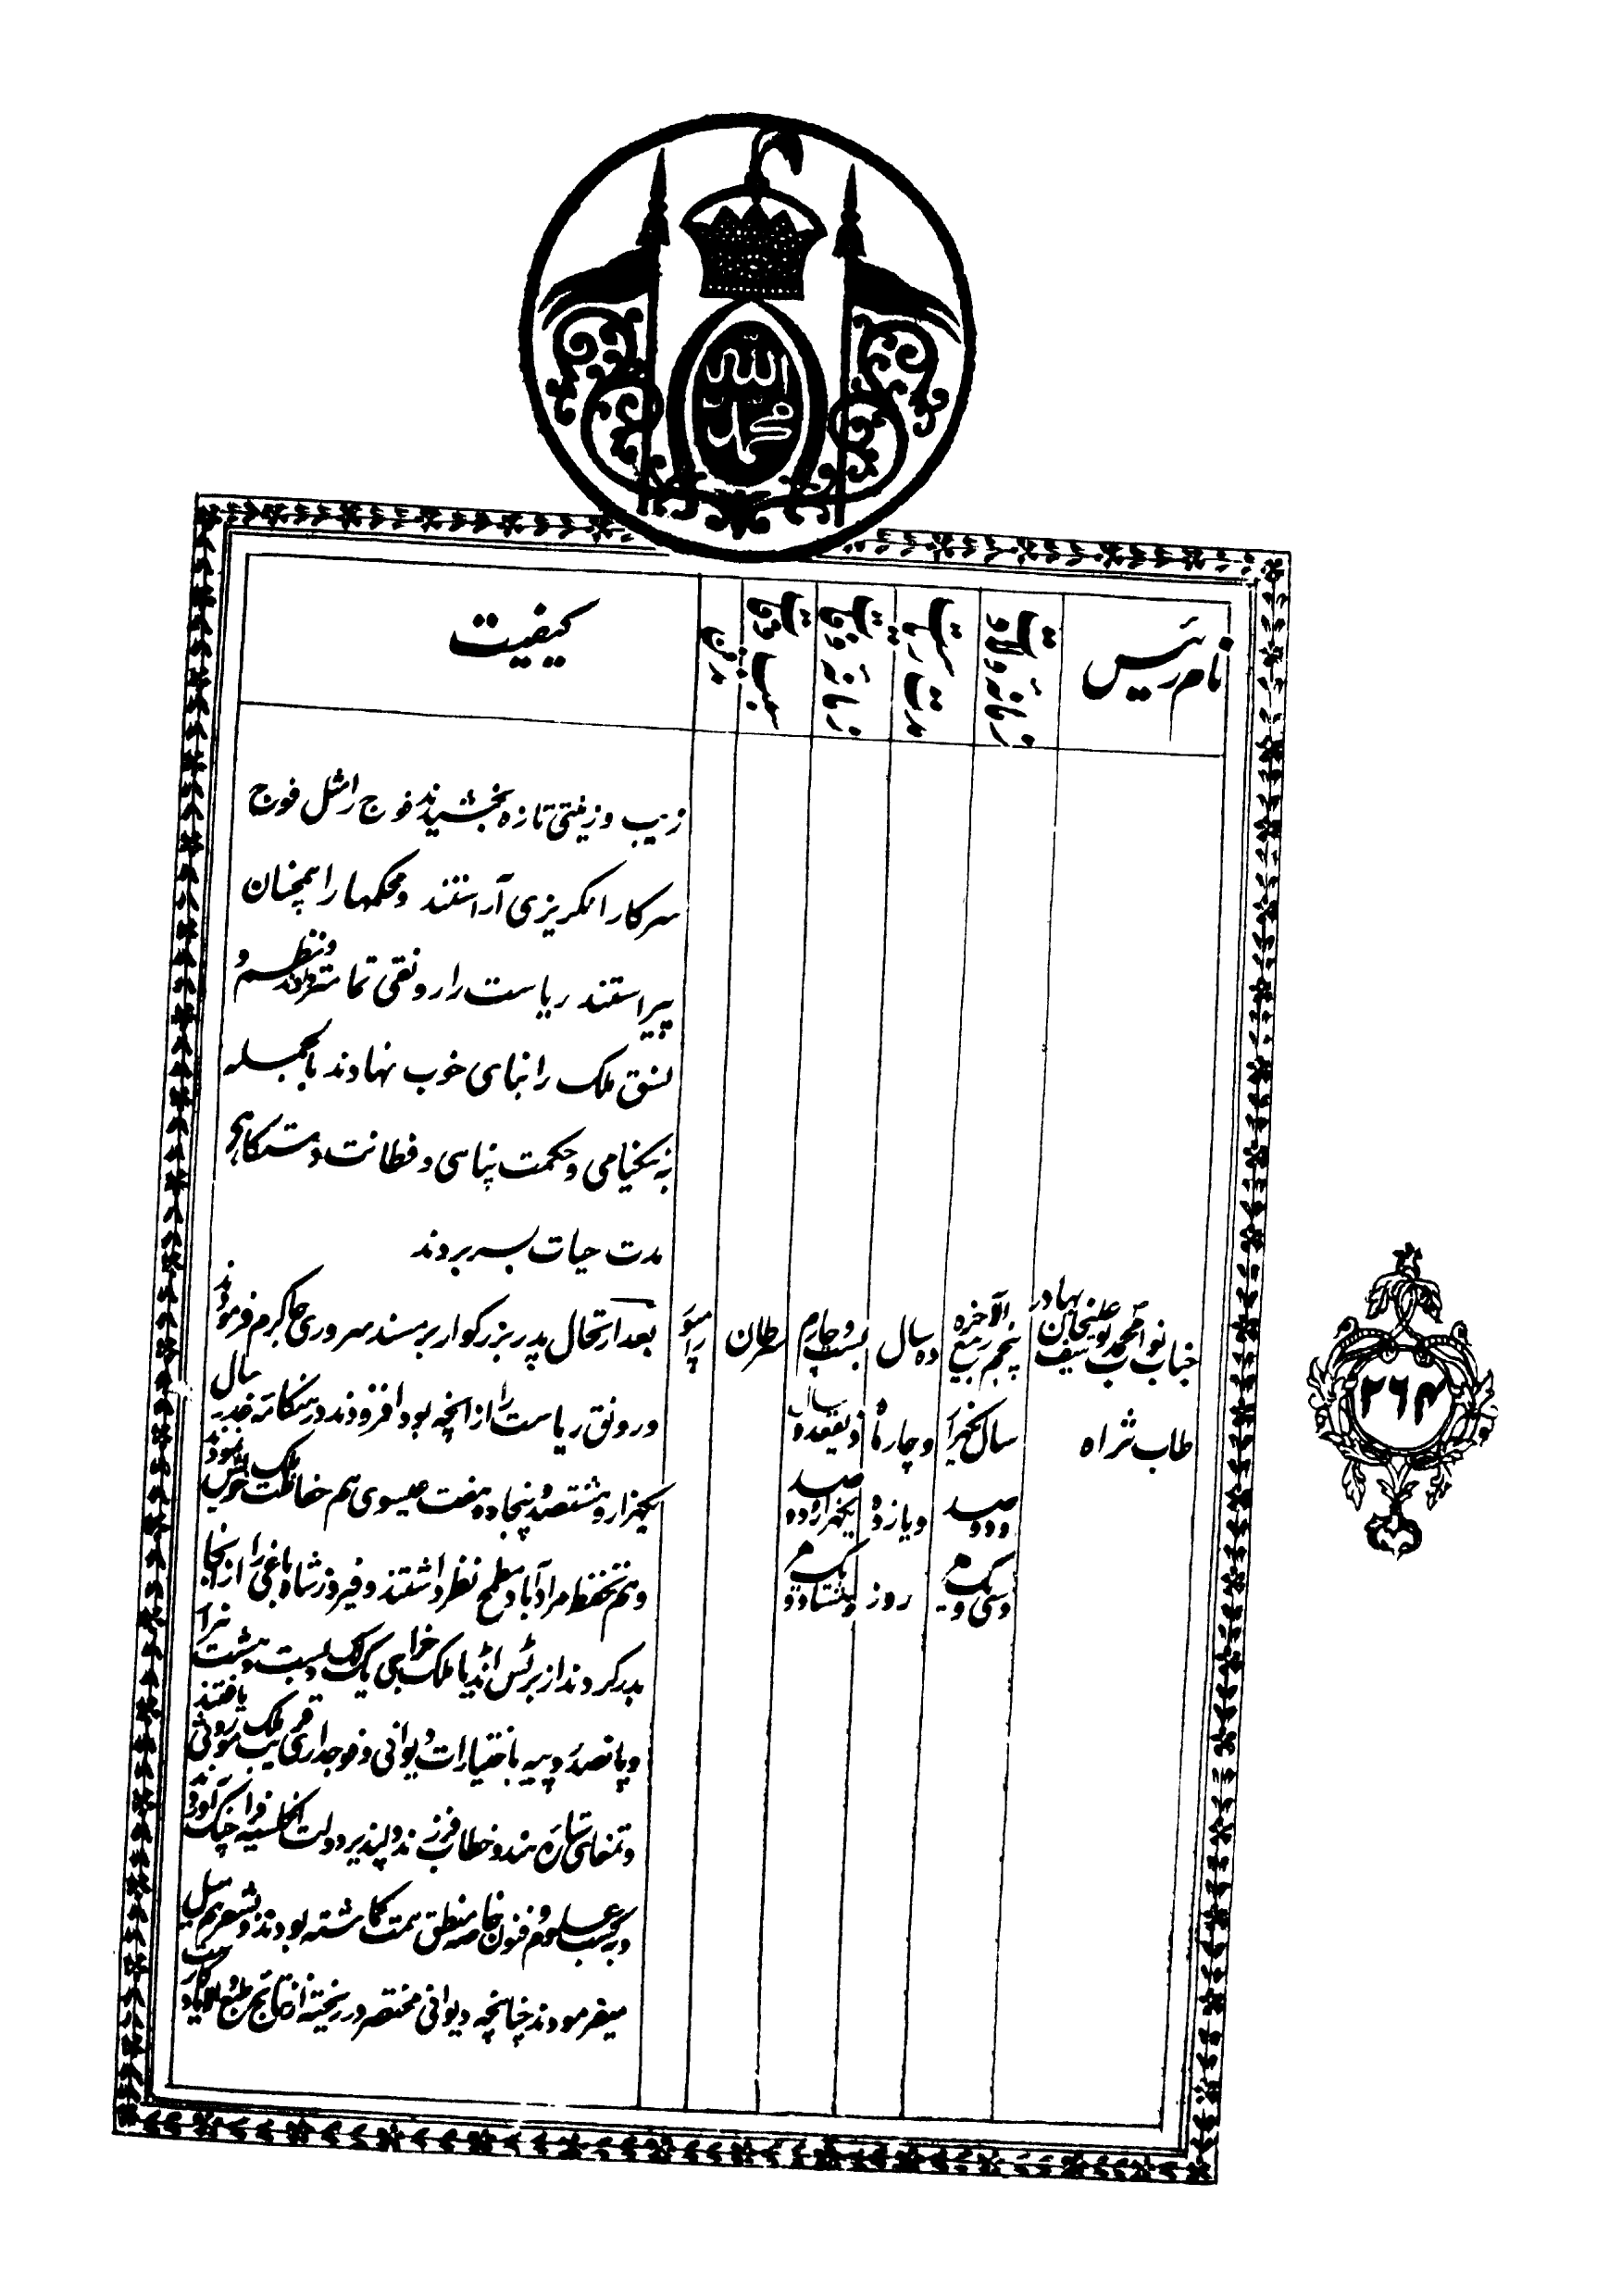 الله
محمد
نام رئیس
زمانهٔ ولادت
مدت ریاست
زمانهٔ وفات
سبب وفات
مدفن
کیفیت
زیب و زینتی تازه بخشیدند فوج را مثل فوج
سرکار انگریزی آراستند و محکمها را همچنان
پیراستند ریاست را رونقی تمامتر دادند و نظم و
نسق ملک را بنای خوب نهادند بالجمله
به نیکنامی و حکمت پناهی و فطانت دستگاهی
مدت حیات بسر بردند
جناب نواب محمد یوسف علیخان بهادر
طاب ثراه
پنجم ربیع الآخره
سال یکهزار
و دو صد
و سی و یکم
ده سال
و چار ماه
و یازده
روز
بست و چارم
ذیقعده سال
یکهزار و دو صد
و هشتاد و یکم
سرطان
رامپور
بعد ارتحال پدر بزرگوار بر مسند سروری جا گرم فرمودند
و رونق ریاست را از آنچه بود افزودند در هنگامهٔ غدر سال
یکهزار و هشتصد و پنجاه و هفت عیسوی هم حفاظت ملک خویش نمودند
و هم تحفظ مرادآباد مطمح نظر داشتند و فیروز شاه باغی را از آنجا
بدر کردند از برٹش انڈیا ملک خراجی یک لک و بست و هشت هزار
و پانصد روپیه باختیارات دیوانی و فوجداری قریب ملک موروثی یافتند
و تمغای ستارهٔ هند و خطاب فرزند دلپذیر دولت انگلسیه فراچنگ آوردند
و بکسب علوم و فنون خاصه منطق همت گماشته بودند و بشعر هم میل
میفرمودند چنانچه دیوانی مختصر در ریخته از نتایج طبع والا یادگار است
۲۶۴